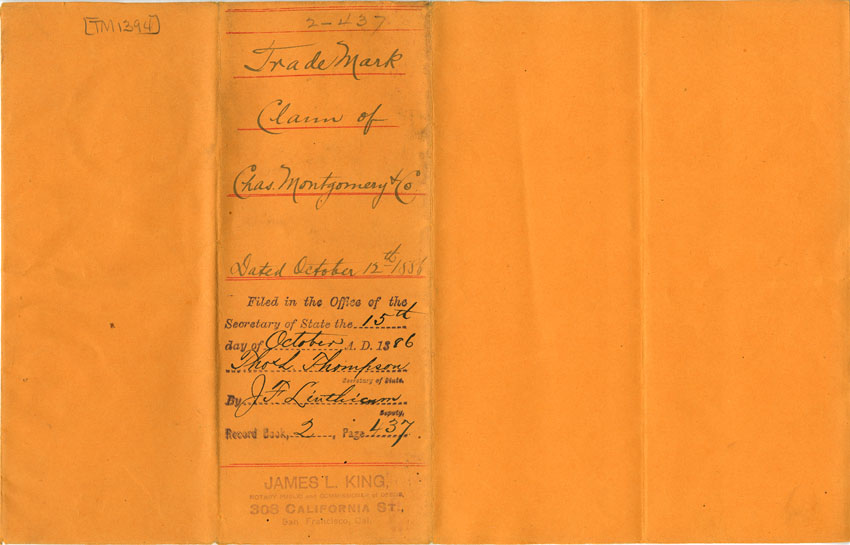 [TM1394]
2-437
Trade Mark
Claim of
Chas. Montgomery & Co.
Dated October 12th 1886
Filed in the Office of the
Secretary of State the 15th
day of October A. D. 1886
Thos L. Thompson
Secretary of State.
By J. F. Linthicum
Deputy.
Record Book, 2, Page 437
JAMES L. KING,
NOTARY PUBLIC and COMMISSIONER of DEEDS,
308 CALIFORNIA ST.,
San Francisco, Cal.